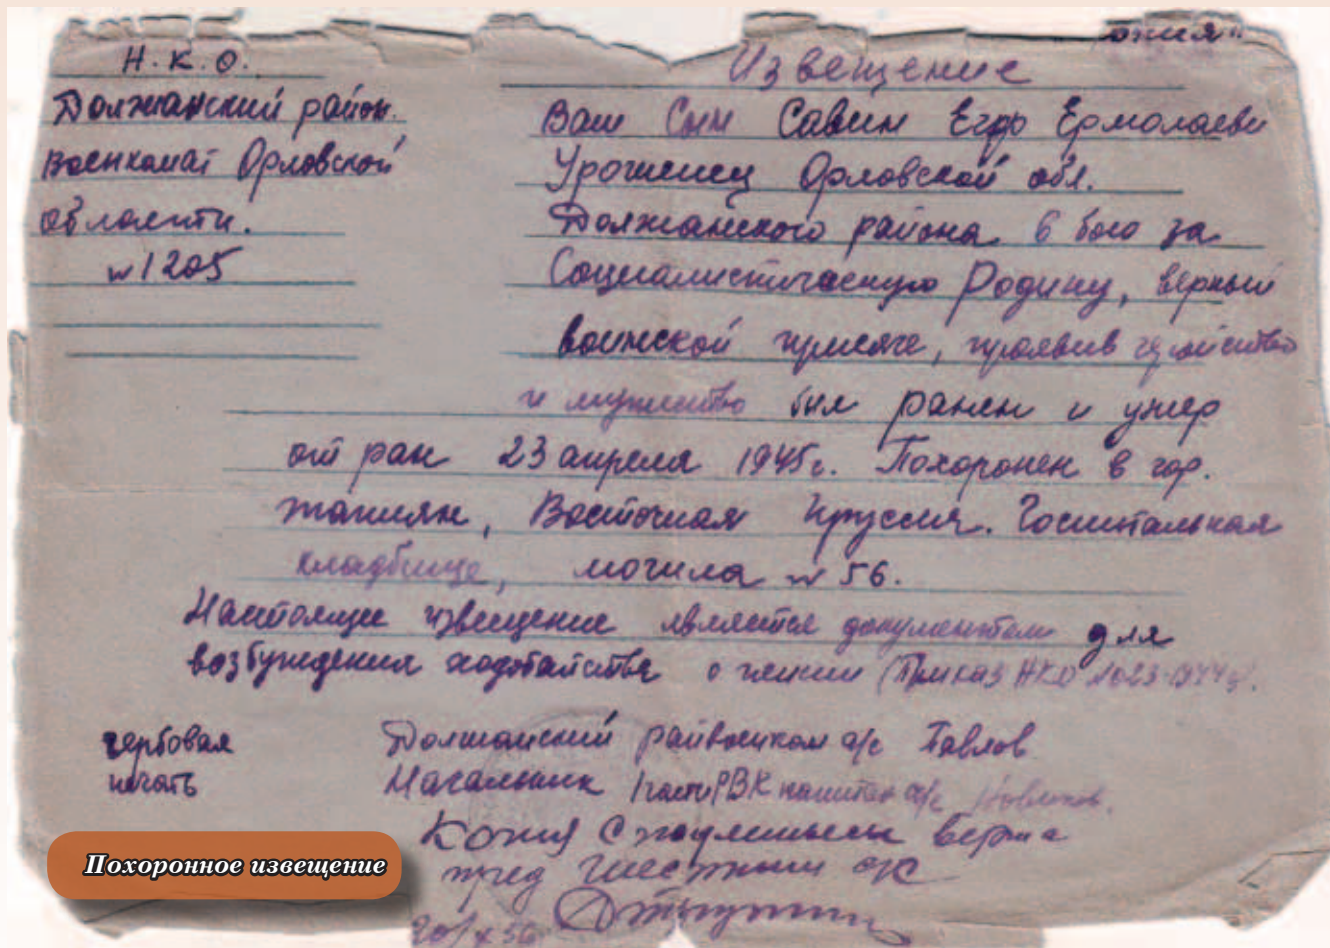 копия"
Н.К.О.
Должанский район.
Военкомат Орловской
области.
№1205
Извещение
Ваш Сын Савин Егор Ермолаеви
Уроженец Орловской обл.
Должанского района в бою за
Социалистическую Родину, верный
воинской присяге, проявив геройство
и мужество был ранен и умер
от ран 23 апреля 1945г. Похоронен в гор.
Восточная Пруссия. Госпитальная
кладбище, могила №56.
Настоящее извещение является документом для
возбуждения ходатайства о пенсии (Приказ НКО 1023-1944г).
гербовая
печать
Должанский райвоенком п/с Павлов
Начальник 1 части РВК капитан п/с Новиков.
Копия с подлинным верна
пред
20/X 56
Похоронное извещение